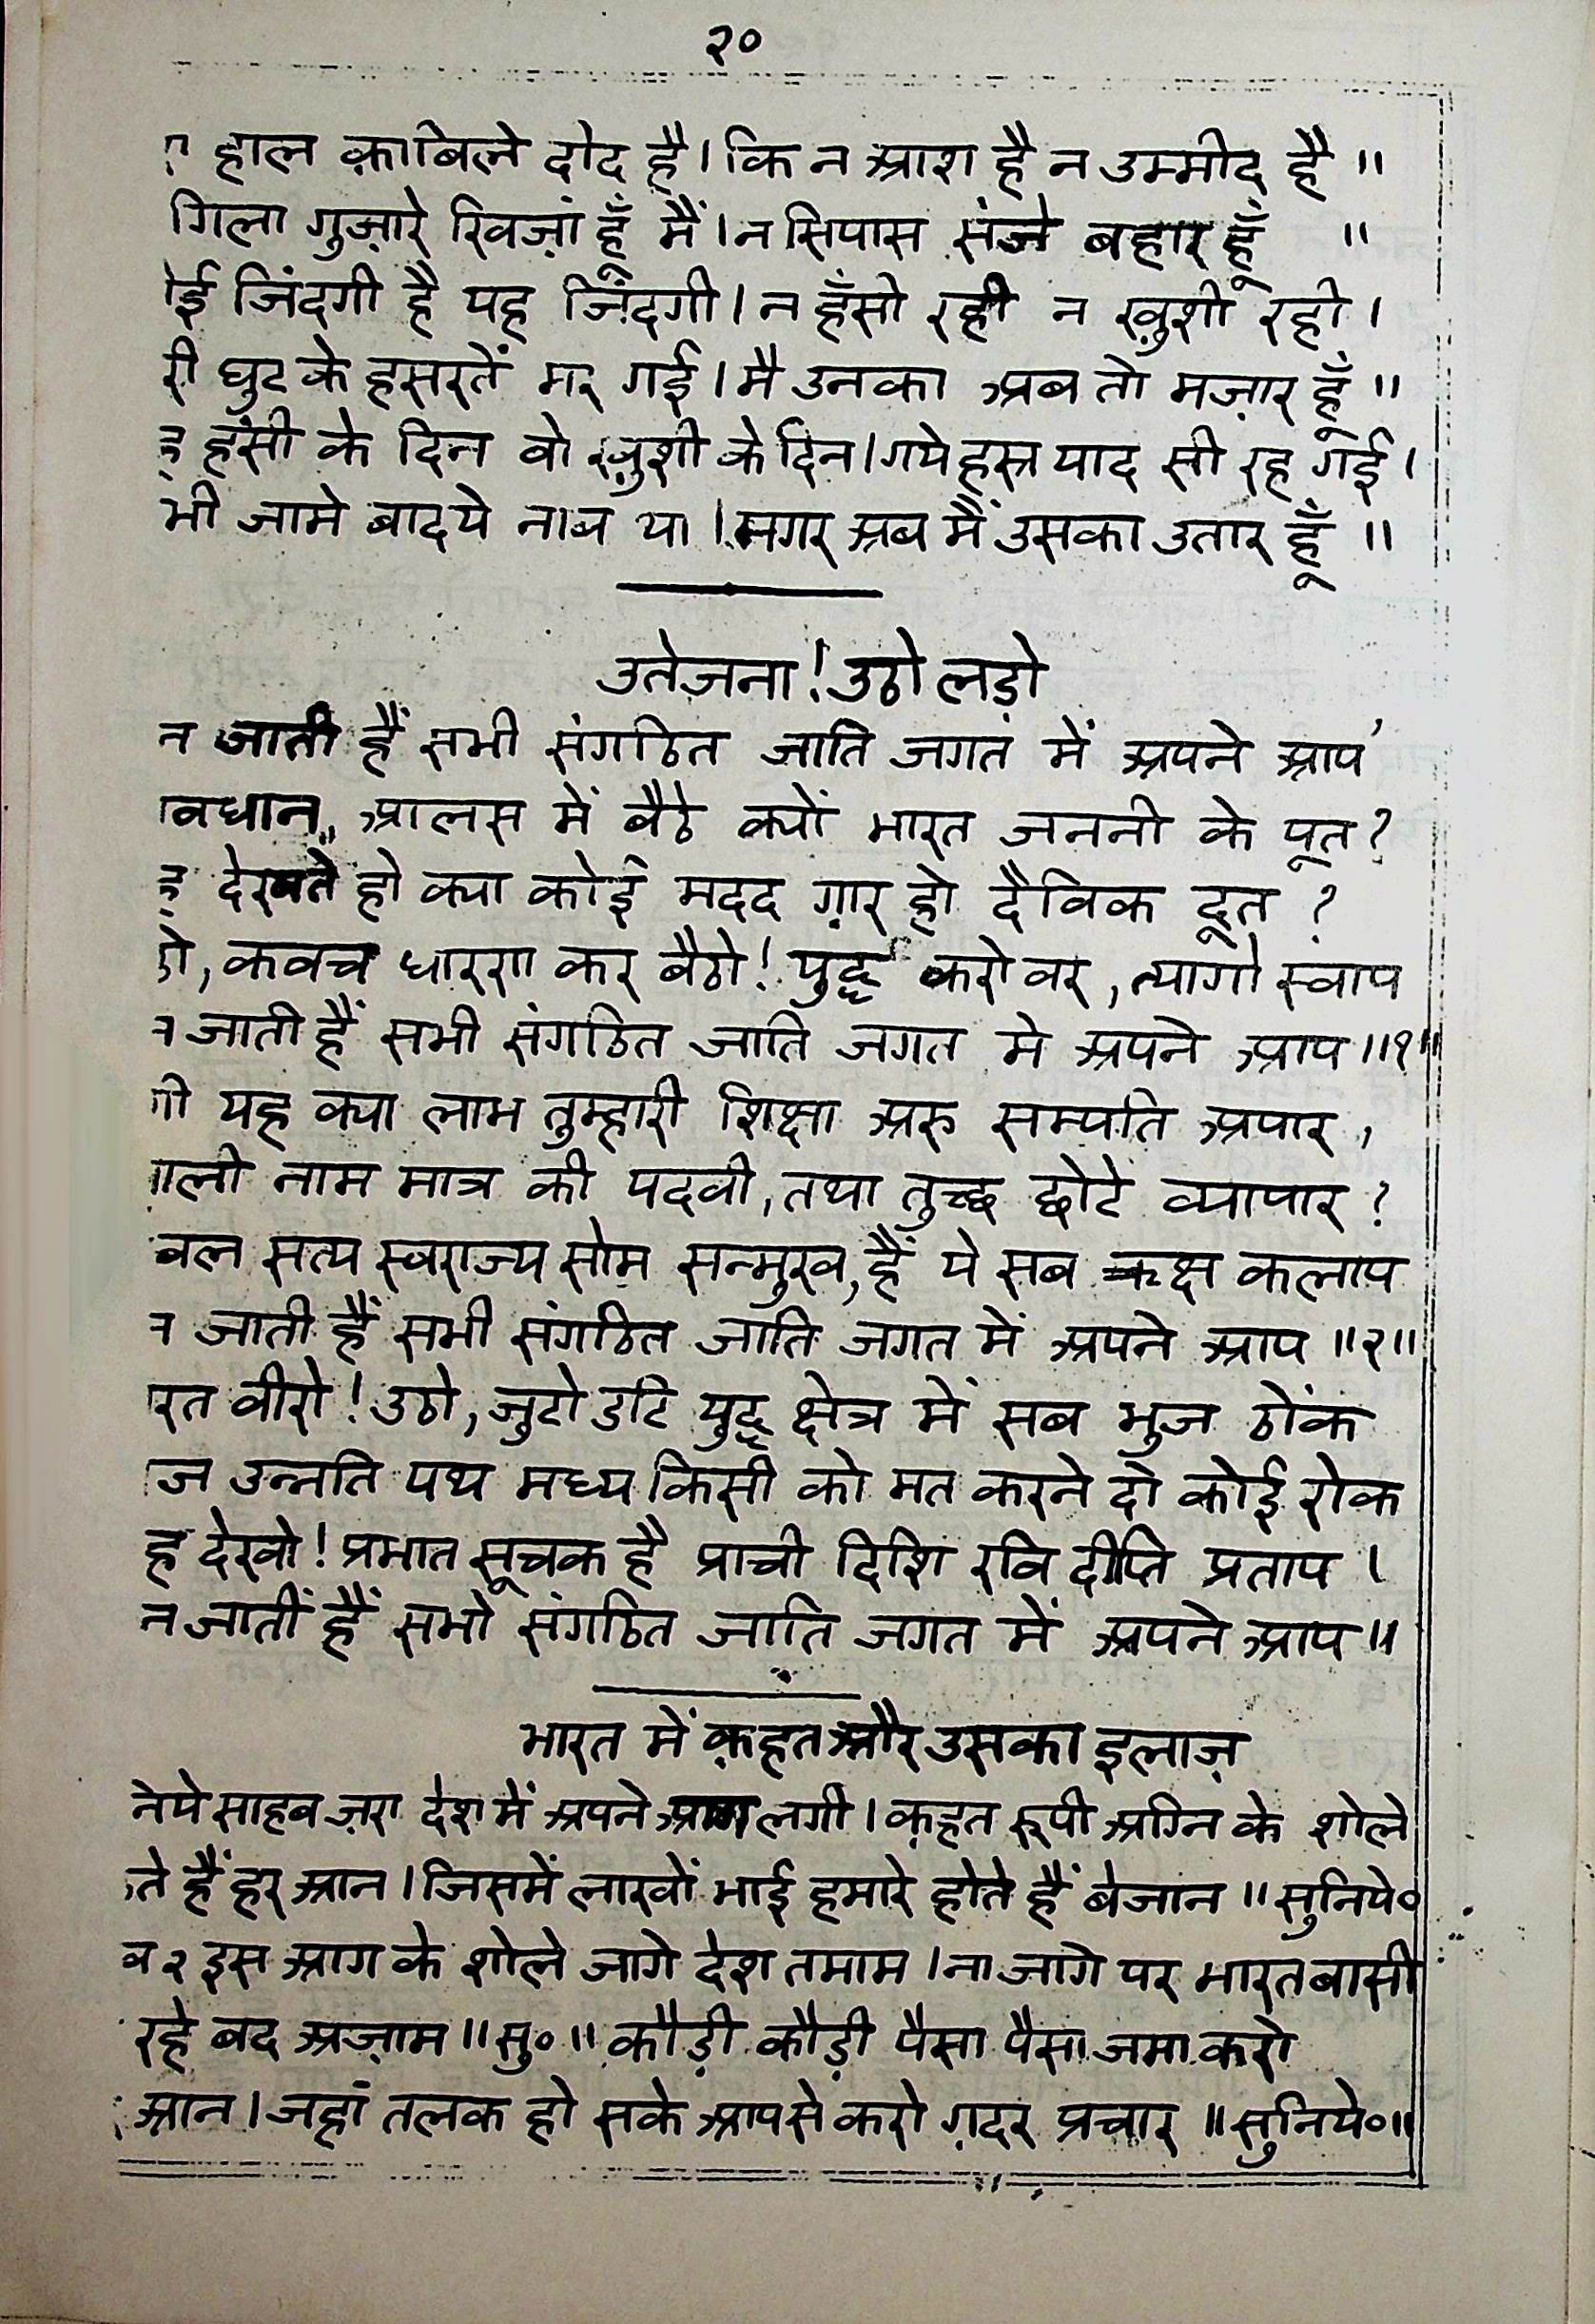 २०
हाल क़ाबिले दीद है। कि न आश है न उम्मीद है ॥
गिला गुज़ारे खिज़ां हूँ मैं। न सिपास संजे बहार हूँ ॥
ई जिंदगी है यह जिंदगी। न हँसी रही न ख़ुशी रही।
री घुट के हसरतें मर गई। मै उनका अब तो मज़ार हूँ ॥
हंसी के दिन वो ख़ुशी के दिन। गये हस्न याद सी रह गई।
भी जामे बादये नाब था। मगर अब मैं उसका उतार हूँ ॥
उतेजना! उठो लड़ो
न जाती हैं सभी संगठित जाति जगत में अपने आप
वधान, आलस में बैठे क्यों भारत जननी के पूत?
देखते हो क्या कोई मदद ग़ार हो दैविक दूत ?
ो, कवच धारण कर बैठो! युद्ध करो वर, त्यागो स्वाप
जाती हैं सभी संगठित जाति जगत मे अपने आप ॥१॥
यह क्या लाभ तुम्हारी शिक्षा अरु सम्पति अपार,
ाली नाम मात्र की पदवी, तथा तुच्छ छोटे व्यापार?
वल सत्य स्वराज्य सोम सन्मुख, हैं ये सब कक्ष कलाप
जाती हैं सभी संगठित जाति जगत में अपने आप ॥२॥
रत वीरो! उठो, जुटो डटि युद्ध क्षेत्र में सब भुज ठोंक
ज उन्नति पथ मध्य किसी को मत करने दो कोई रोक
ह देखो! प्रभात सूचक है प्राची दिशि रवि दीप्ति प्रताप।
न जातीं हैं सभी संगठित जाति जगत में अपने आप॥
भारत में क़हत और उसका इलाज़
नेये साहब ज़रा देश में अपने आग लगी। क़हत रूपी अग्नि के शोले
ते हैं हर आन। जिसमें लाखों भाई हमारे होते हैं बेजान ॥ सुनिये०
ब २ इस आग के शोले जागे देश तमाम। ना जागे पर भारत बासी
रहे बद अज़ाम ॥ सु० ॥ कौड़ी कौड़ी पैसा पैसा जमा करो
आन। जहां तलक हो सके आपसे करो ग़दर प्रचार ॥ सुनिये०॥